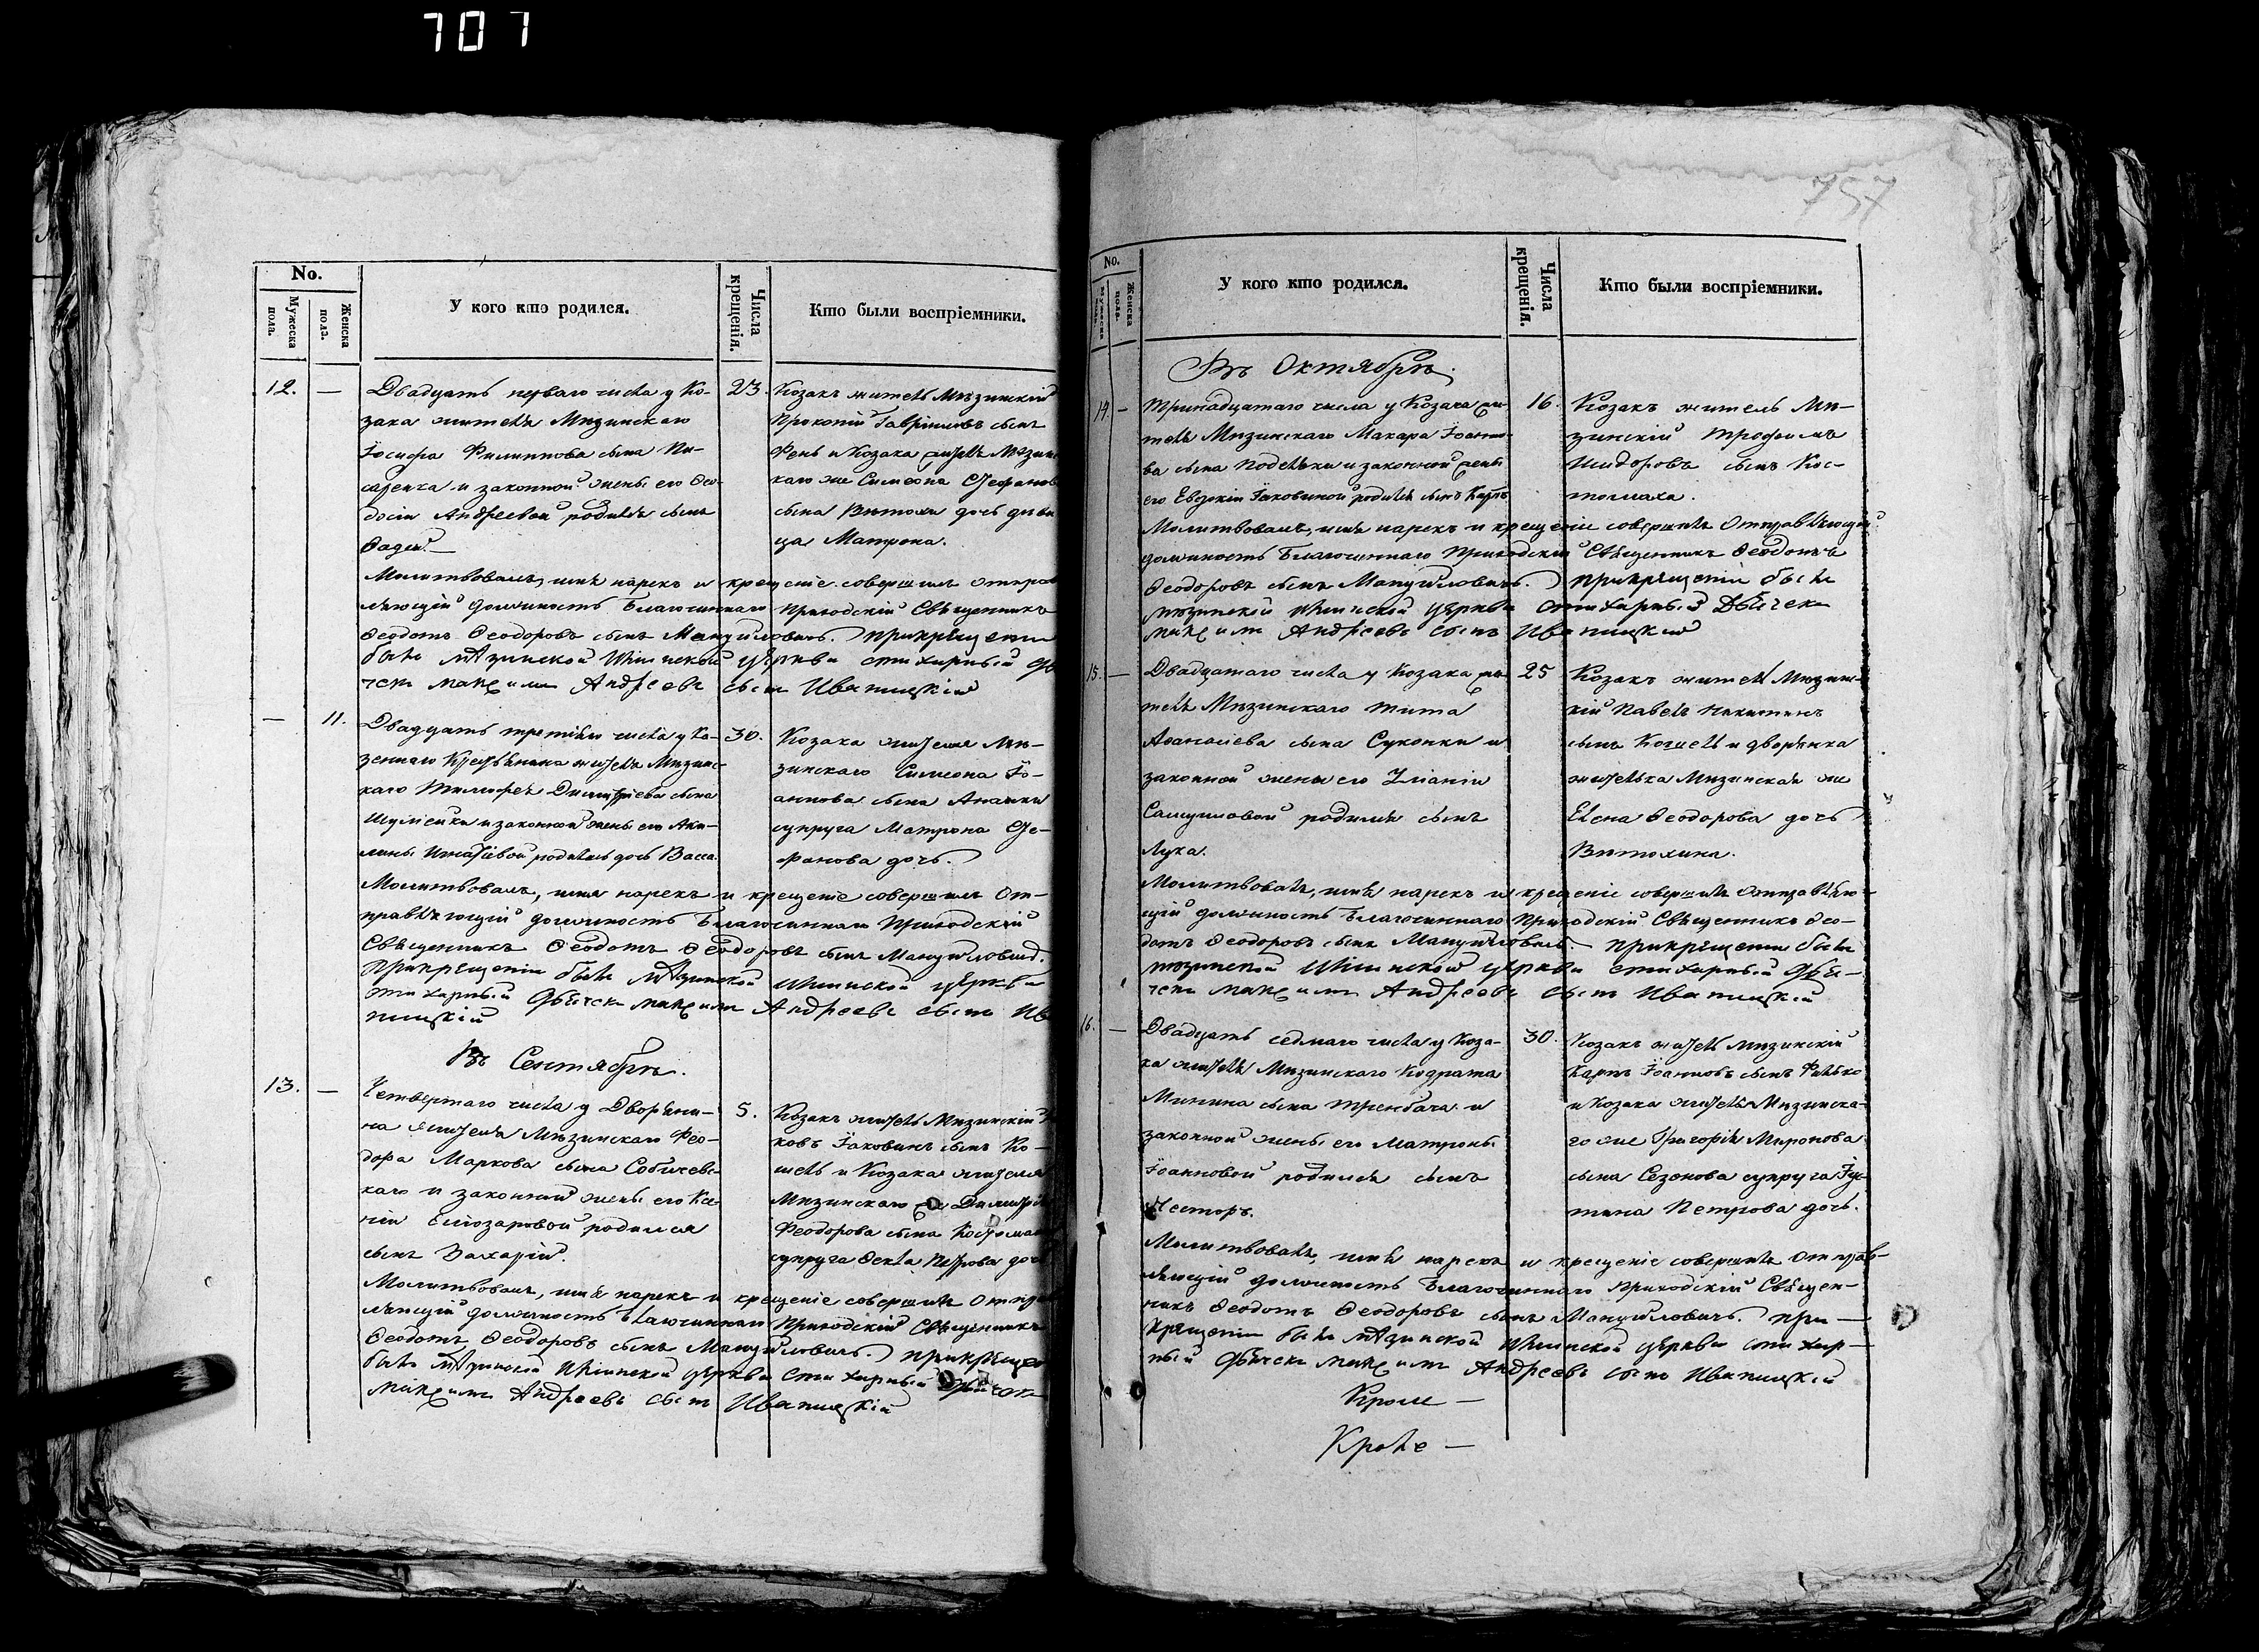 707
No.
Мужеска пола.
Женска пола.
У кого кто родился.
Числа крещенія.
Кто были воспріемники.
12. —
Двадцать перваго числа у Ко-
зака жителя Мѣзинскаго
Іосифа Филиппова сына Пи-
саренка и законной жены его Ѳео-
досіи Андреевой родился сынъ
Ѳадей. —
23.
Козакъ житель Мѣзинскій
Прокопій Гавріиловъ сынъ
Фень и Козака жителя Мѣзинс
каго же Симеона Стефанов
сына Витохи дочь дѣви
ца Матрона.
Молитвовалъ, имя нарекъ и крещеніе совершилъ отправ
ляющій должность Благочиннаго Приходскій Священникъ
Ѳеодотъ Ѳеодоровъ сынъ Мануйловичъ. при крещеніи
былъ мѣзинской церкви стихарный дья
чекъ максимъ Андреевъ сынъ Иваницкій
— 11.
Двадцать третьяго числа у Ка-
зеннаго Крестьянина жителя Мѣзинс-
каго Тимофея Димитріева сына
Шулейки и законной жены его Аки-
лины Игнатіевой родилась дочь Васса.
30.
Козака жителя Мѣ-
зинскаго Симеона Іо-
аннова сына Ананки
супруга Матрона Сте-
фанова дочь.
Молитвовалъ, имя нарекъ и крещеніе совершилъ От-
правляющій должность Благочиннаго Приходскій
Священникъ Ѳеодотъ Ѳеодоровъ сынъ Мануйловичъ.
При крещеніи былъ мѣзинской церкви
стихарный дьячекъ максимъ Андреевъ сынъ Ива
ницкій
Въ Сентябрѣ.
13. —
Четвертаго числа у Дворяни-
на жителя Мѣзинскаго Фео-
дора Маркова сына Собичевс-
каго и законной жены его Ксе-
ніи Елiозаровой родился
сынъ Захарій.
5.
Козакъ житель Мѣзинскій Я
ковъ Іаковинъ сынъ Ко-
шель и Козака жителя
Мѣзинскаго же Димитрія
Феодорова сына Костомах
супруга Ѳекла Петрова доч
Молитвовалъ, имя нарекъ и крещеніе совершилъ Отправ
ляющій должность Благочиннаго Приходскій Священникъ
Ѳеодотъ Ѳеодоровъ сынъ Мануйловичъ. при креще
былъ Мѣзинской церкви стихарный дьячекъ
максимъ Андреевъ сынъ Иваницкій
757
No.
Мужеска пола.
Женска пола.
У кого кто родился.
Числа крещенія.
Кто были воспріемники.
Въ Октябрѣ.
14. —
Тринадцатаго числа у Козака жи-
теля Мѣзинскаго Макара Іоанно-
ва сына Подельки и законной жены
его Евдокіи Іаковиной родился сынъ Карпъ
16.
Козакъ житель Мѣ-
зинскій Трофимъ
Исидоровъ сынъ Кос-
томаха.
Молитвовалъ, имя нарекъ и крещеніе совершилъ Отправляющій
должность Благочиннаго Приходскій Священникъ Ѳеодотъ
Ѳеодоровъ сынъ Мануйловичъ. При крещеніи былъ
мѣзинской церкви стихарный Дьячекъ
максимъ Андреевъ сынъ Иваницкій
15. —
Двадцатаго числа у Козака жи-
теля Мѣзинскаго Тита
Аѳанасіева сына Суконки и
законной жены его Уліаніи
Самуиловой родился сынъ
Лука.
25
Козакъ житель Мѣзинс-
кій Павелъ Никитинъ
сынъ Кошель и дворянка
жителька Мѣзинская же
Елена Ѳеодорова дочь
Витохина.
Молитвовалъ, имя нарекъ и крещеніе совершилъ Отправляю-
щій должность Благочиннаго Приходскій Священникъ Ѳео-
дотъ Ѳеодоровъ сынъ Мануйловичъ. При крещеніи былъ
мѣзинской церкви стихарный дья-
чекъ максимъ Андреевъ сынъ Иваницкій
16. —
Двадцать седмаго числа у Коза-
ка жителя Мѣзинскаго Кодрата
Минина сына Трембача и
законной жены его Матроны
Іоанновой родился сынъ
Несторъ.
30.
Козакъ житель Мѣзинскій
Карпъ Іоанновъ сынъ Филько
и Козака жителя Мѣзинска-
го же Григорія Миронова
сына Сезонова супруга Іус-
тина Петрова дочь.
Молитвовалъ, имя нарекъ и крещеніе совершилъ отправ-
ляющій должность Благочиннаго Приходскій Священ-
никъ Ѳеодотъ Ѳеодоровъ сынъ Мануйловичъ. При —
крещеніи былъ мѣзинской церкви стихар—
ный дьячекъ максимъ Андреевъ сынъ Иваницкій